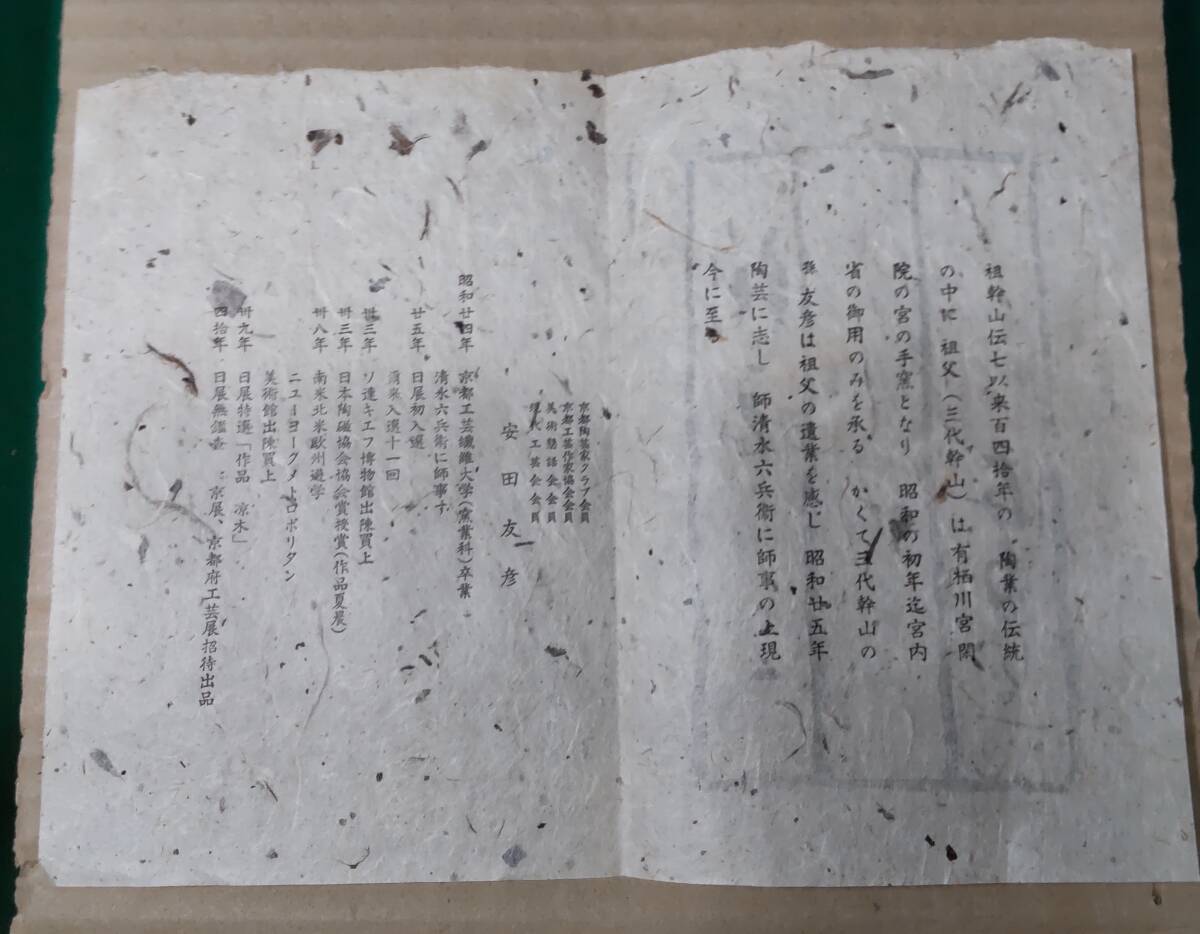 祖幹山伝七以来百四拾年の 陶業の伝統
の中に 祖父(三代幹山)は有栖川宮閑
院の宮の手窯となり 昭和の初年迄宮内
省の御用のみを承る かくて三代幹山の
孫 友彦は祖父の遺業を感じ 昭和廿五年
陶芸に志し 師清水六兵衛に師事の上現
今に至る
京都陶芸家クラブ会員
京都工芸作家協会会員
美術懇話会会員
現代工芸会会員
安田友彦
昭和廿四年 京都工芸繊維大学(窯業科)卒業
清水六兵衛に師事す
廿五年 日展初入選
爾来入選十一回
卅三年 ソ連キエフ博物館出陳買上
卅三年 日本陶磁協会協会賞授賞(作品夏晨)
卅八年 南米北米欧州遊学
ニューヨークメトロポリタン
美術館出陳買上
卅九年 日展特選「作品 凉木」
四拾年 日展無鑑査 京展、京都府工芸展招待出品